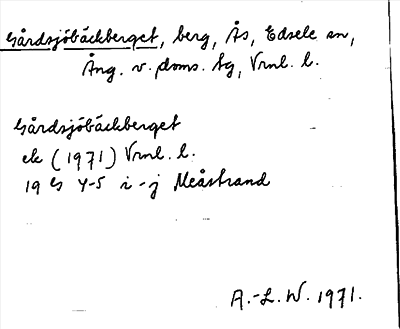 Gårdsjöbäckberget, berg, Ås, Edsele sn,
Ång. v. doms. tg, Vrnl. l.
Gårdsjöbäckberget
ek (1971) Vrnl. l.
19 G Y-5 i-j Meåstrand
A.-L. W. 1971.